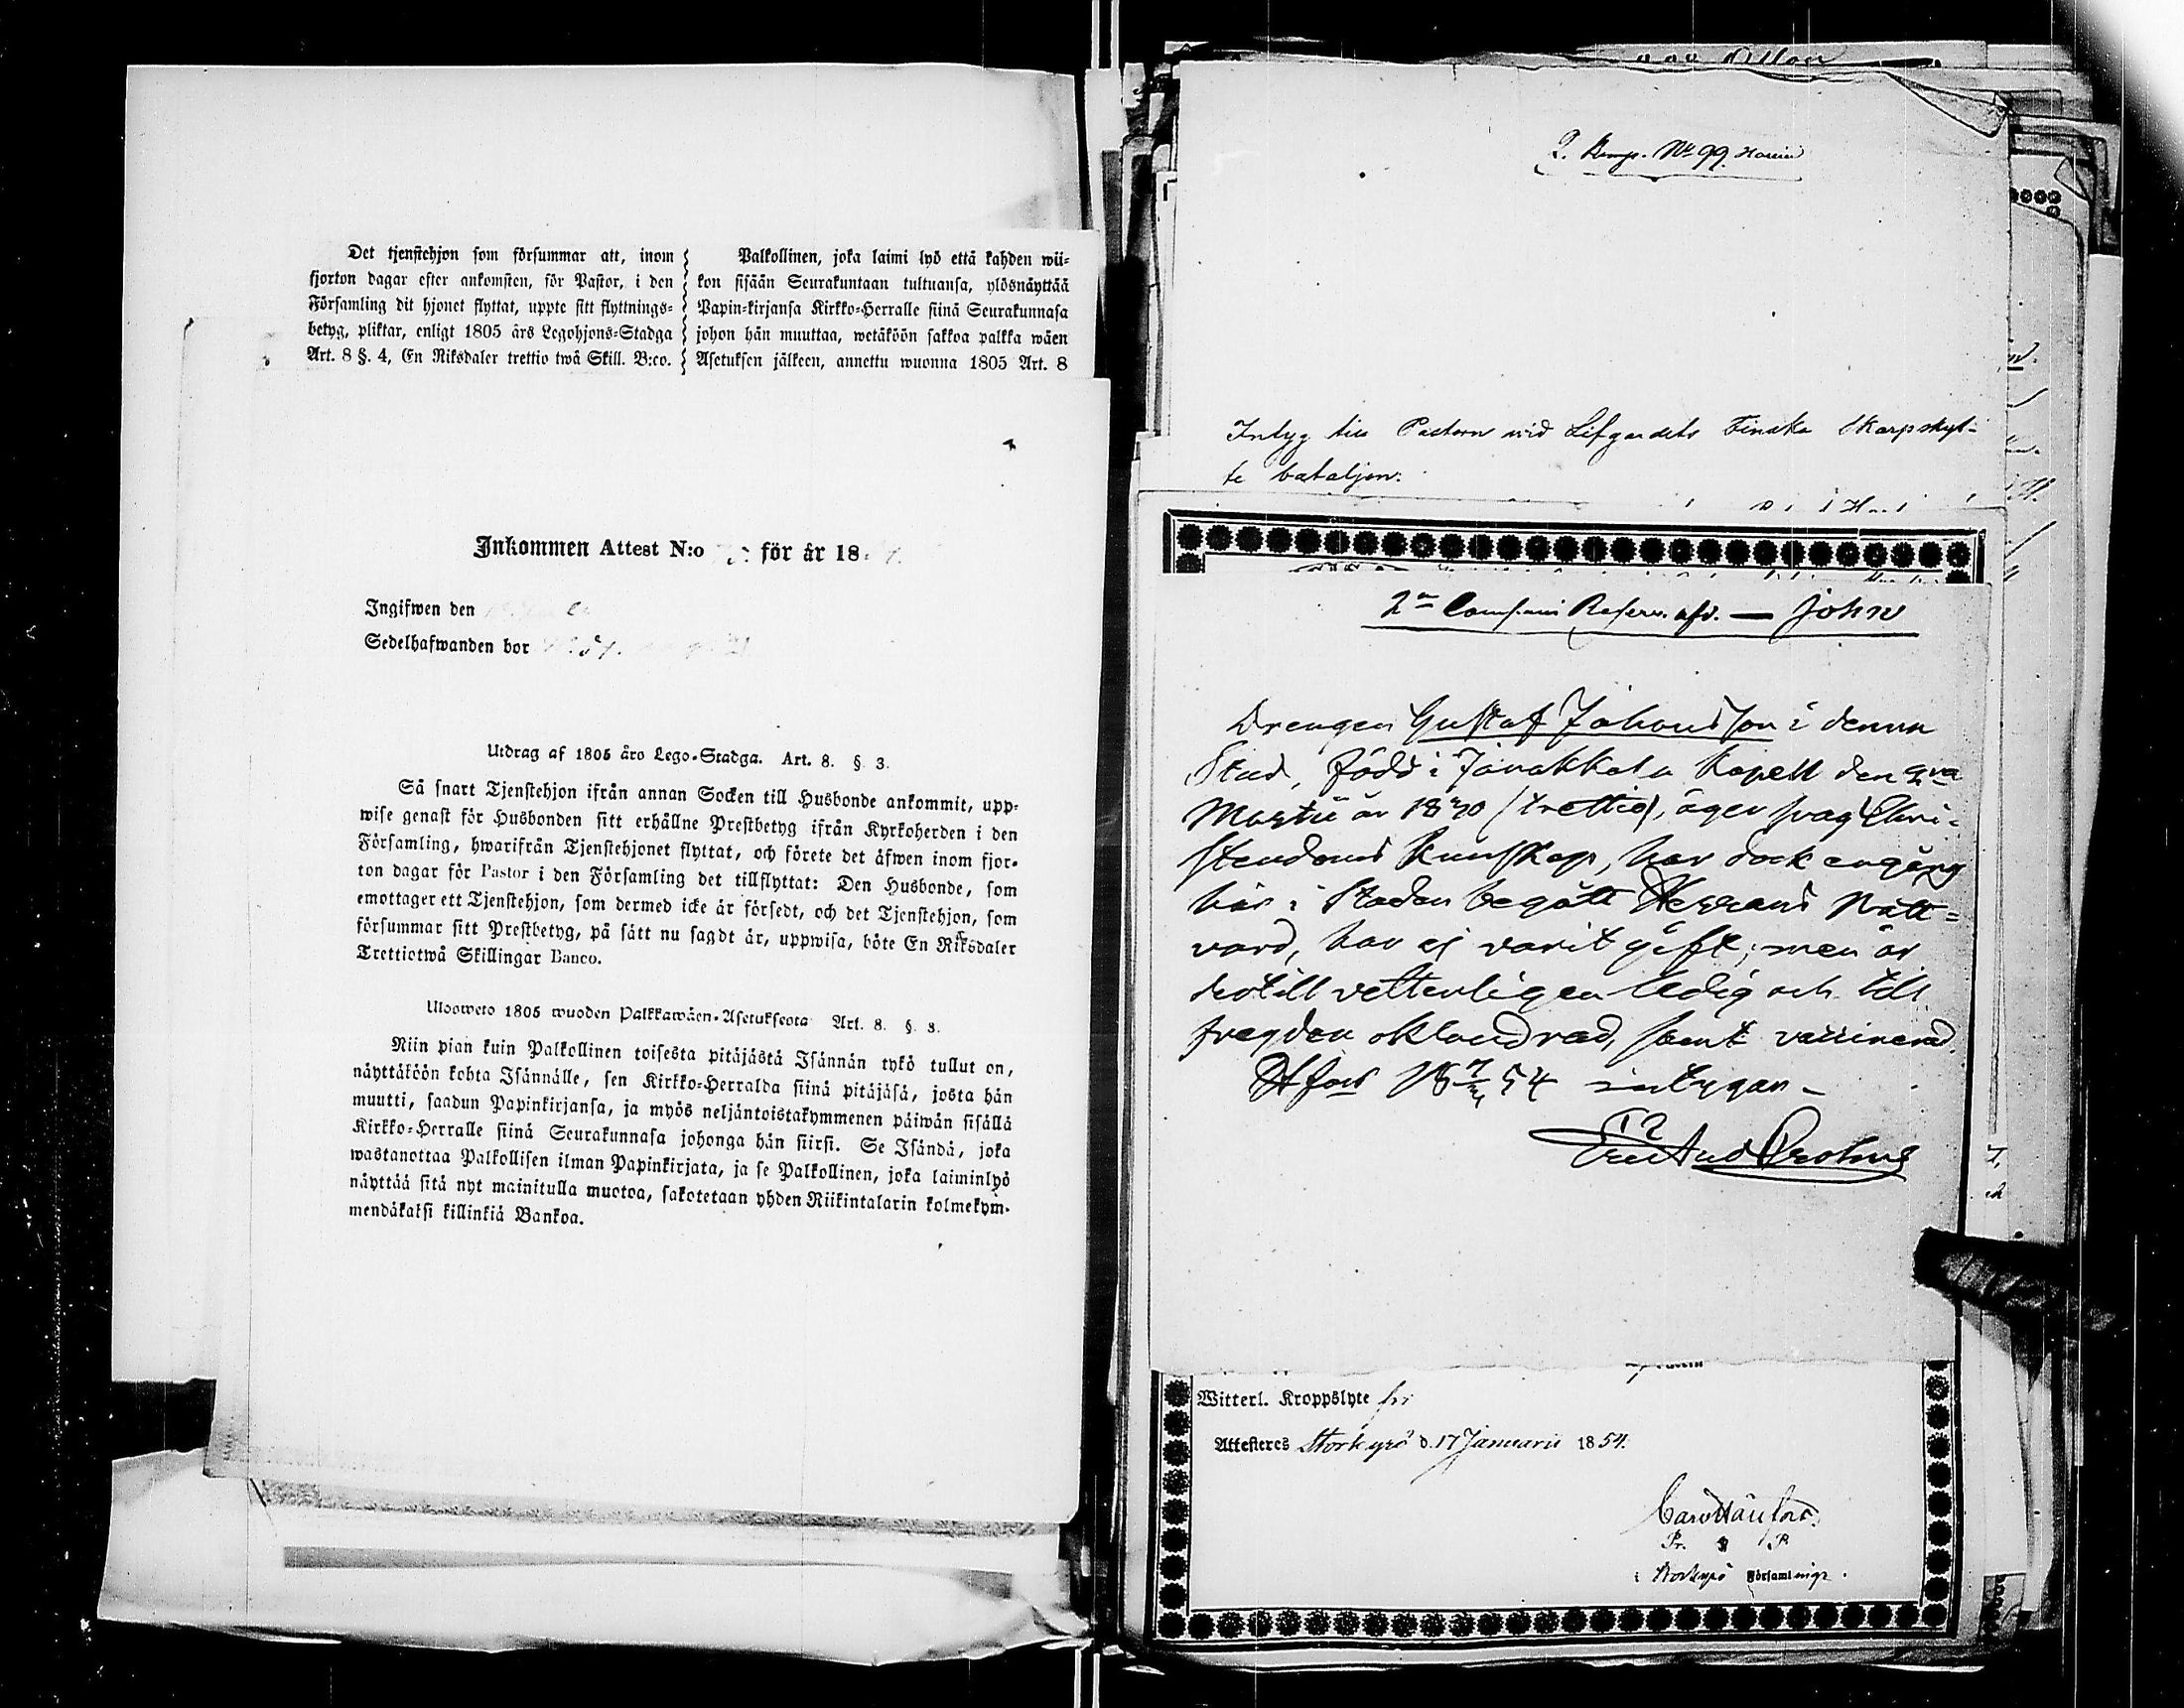 Det tjenstehjon som försummar att, inom
fjorton dagar efter ankomsten, för Pastor, i den
Församling dit hjonet flyttat, uppte sitt flyttnings-
betyg, pliktar, enligt 1805 års Legohjons-Stadga
Art. 8 §. 4, En Riksdaler trettio twå Skill. B:co.
Palkollinen, joka laimi lyö että kahden wii-
kon sisään Seurakuntaan tultuansa, ylösnäyttää
Papin-kirjansa Kirkko-Herralle siinä Seurakunnasa
johon hän muuttaa, wetäköön sakkoa palkka wäen
Asetuksen jälkeen, annettu wuonna 1805 Art. 8
Inkommen Attest N:o för år 18
Ingifwen den
Sedelhafwanden bor
Utdrag af 1805 åro Lego-Stadga. Art. 8. § 3.
Så snart Tjenstehjon ifrån annan Socken till Husbonde ankommit, upp-
wise genast för Husbonden sitt erhållne Prestbetyg ifrån Kyrkoherden i den
Församling, hwarifrån Tjenstehjonet flyttat, och förete det äfwen inom fjor-
ton dagar för Pastor i den Församling det tillflyttat: Den Husbonde, som
emottager ett Tjenstehjon, som dermed icke är försedt, och det Tjenstehjon, som
försummar sitt Prestbetyg, på sätt nu sagdt är, uppwisa, böte En Riksdaler
Trettiotwå Skillingar Banco.
Ulooweto 1805 wuoden Palkkawäen-Asetukseota Art. 8. § 3.
Niin pian kuin Palkollinen toisesta pitäjästä Isännän tykö tullut on,
näyttäköön kohta Isännälle, sen Kirkko-Herralda siinä pitäjäsä, josta hän
muutti, saadun Papinkirjansa, ja myös neljäntoistakymmenen päiwän sisällä
Kirkko-Herralle siinä Seurakunnasa johonga hän siirsi. Se Isändä, joka
wastanottaa Palkollisen ilman Papinkirjata, ja se Palkollinen, joka laiminlyö
näyttää sitä nyt mainitulla muotoa, sakotetaan yhden Riikintalarin kolmekym-
mendäkaksi killinkiä Bankoa.
2. Komp. No 99
Intyg till Pastorn wid Lifgardets Finska Skarpskyt-
te bataljon:
2:a Compani Reserv. afd. — John
Drengen Gustaf Johansson i denna
Stad, född i Janakkala Kapell den 2:ra
Martii år 1830 (trettio), äger svag Chri-
stendoms kunskap, har dock engång
här i Staden begått Herrans Natt-
vard, har ej varit gift; men är
dertill vetterligen ledig och till
fregden oklandrad, samt vaccinerad.
H:fors 18 54 intygar –
Witterl. Kroppslyte fri
Attesteres Storkyrö d. 17 Januarii 1854.
i Storkyrö Församlingr.